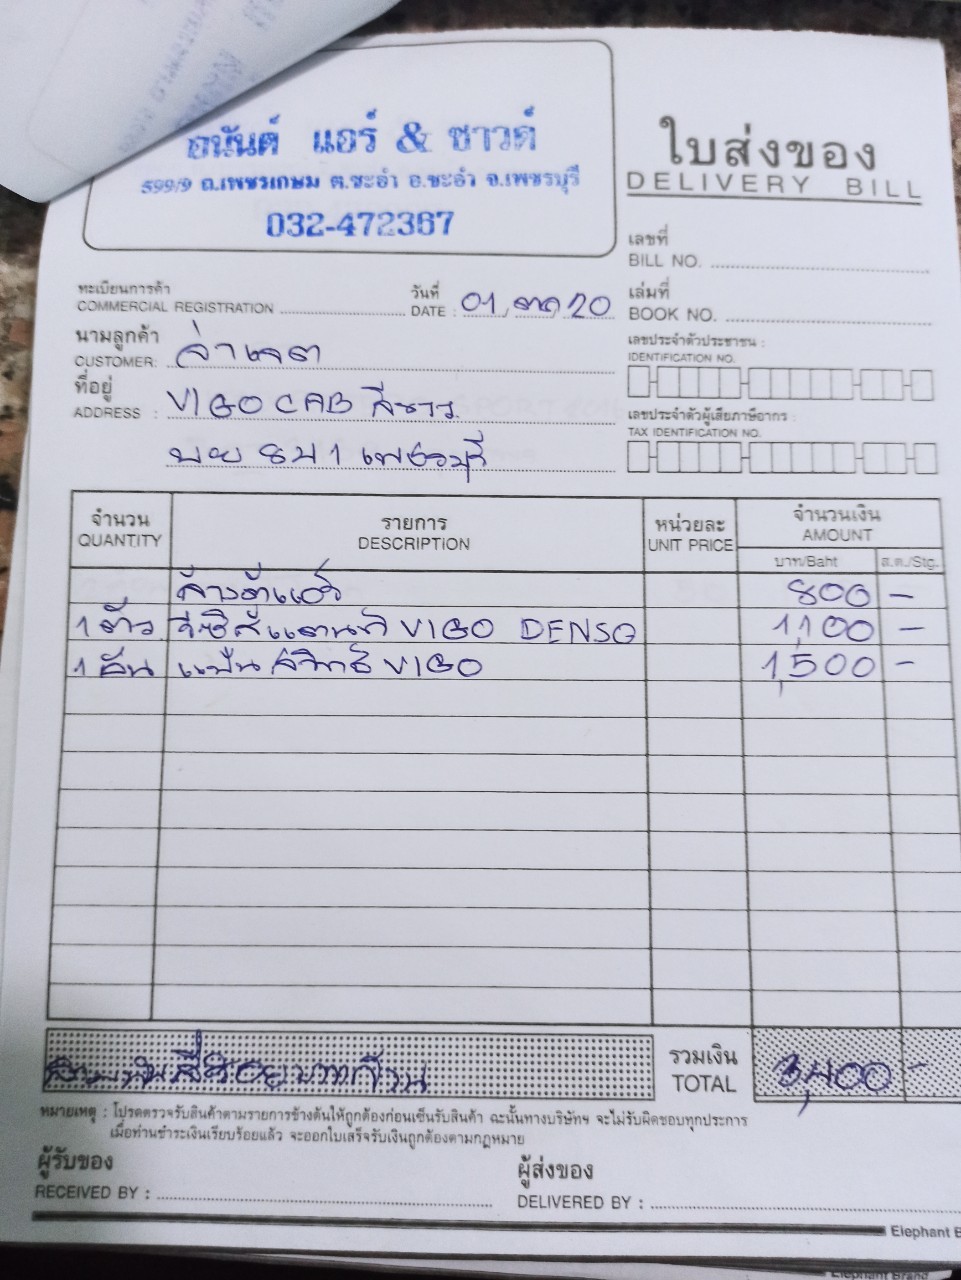 อนันต์ แอร์ & ซาวด์
599/9 ถ.เพชรเกษม ต.ชะอำ อ.ชะอำ จ.เพชรบุรี
032-472367
ใบส่งของ
DELIVERY BILL
เลขที่
BILL NO.
ทะเบียนการค้า
COMMERCIAL REGISTRATION
วันที่
DATE : 01, ตค, 20
เล่มที่
BOOK NO.
นามลูกค้า
CUSTOMER:
เลขประจำตัวประชาชน :
IDENTIFICATION NO.
ที่อยู่
ADDRESS : VIGO CAB สีขาว
เลขประจำตัวผู้เสียภาษีอากร :
TAX IDENTIFICATION NO.
841 เพชรบุรี
จำนวน
QUANTITY
รายการ
DESCRIPTION
หน่วยละ
UNIT PRICE
จำนวนเงิน
AMOUNT
บาท/Baht
ส.ต./Stg.
ล้างตู้แอร์ 800 -
1 ตัว VIGO DENSO 1,100 -
1 อัน VIGO 1,500 -
สามพันสี่ร้อยบาทถ้วน
รวมเงิน
TOTAL
3,400 -
หมายเหตุ : โปรดตรวจรับสินค้าตามรายการข้างต้นให้ถูกต้องก่อนเซ็นรับสินค้า ฉะนั้นทางบริษัทฯ จะไม่รับผิดชอบทุกประการ
เมื่อท่านชำระเงินเรียบร้อยแล้ว จะออกใบเสร็จรับเงินถูกต้องตามกฎหมาย
ผู้รับของ
RECEIVED BY :
ผู้ส่งของ
DELIVERED BY :
Elephant B
Elephant Brand